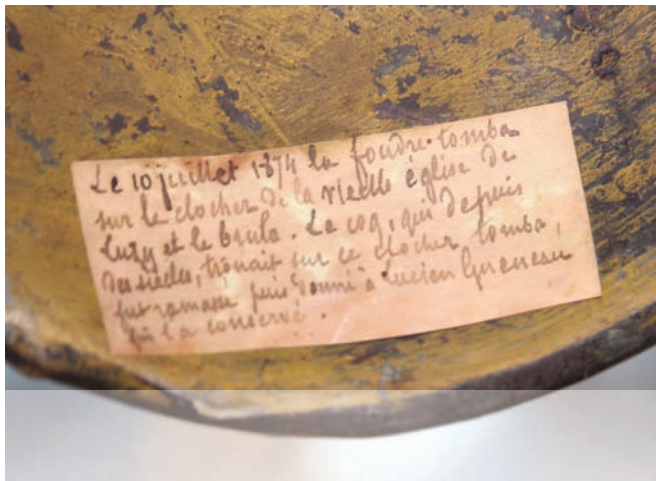 Le 10 juillet 1874 la foudre tomba
sur le clocher de la vieille église de
Luzy et le brula. Le coq, qui depuis
des siècles, trônait sur ce clocher, tomba,
fut ramassé puis donné à Lucien Gueneau
qui l'a conservé.